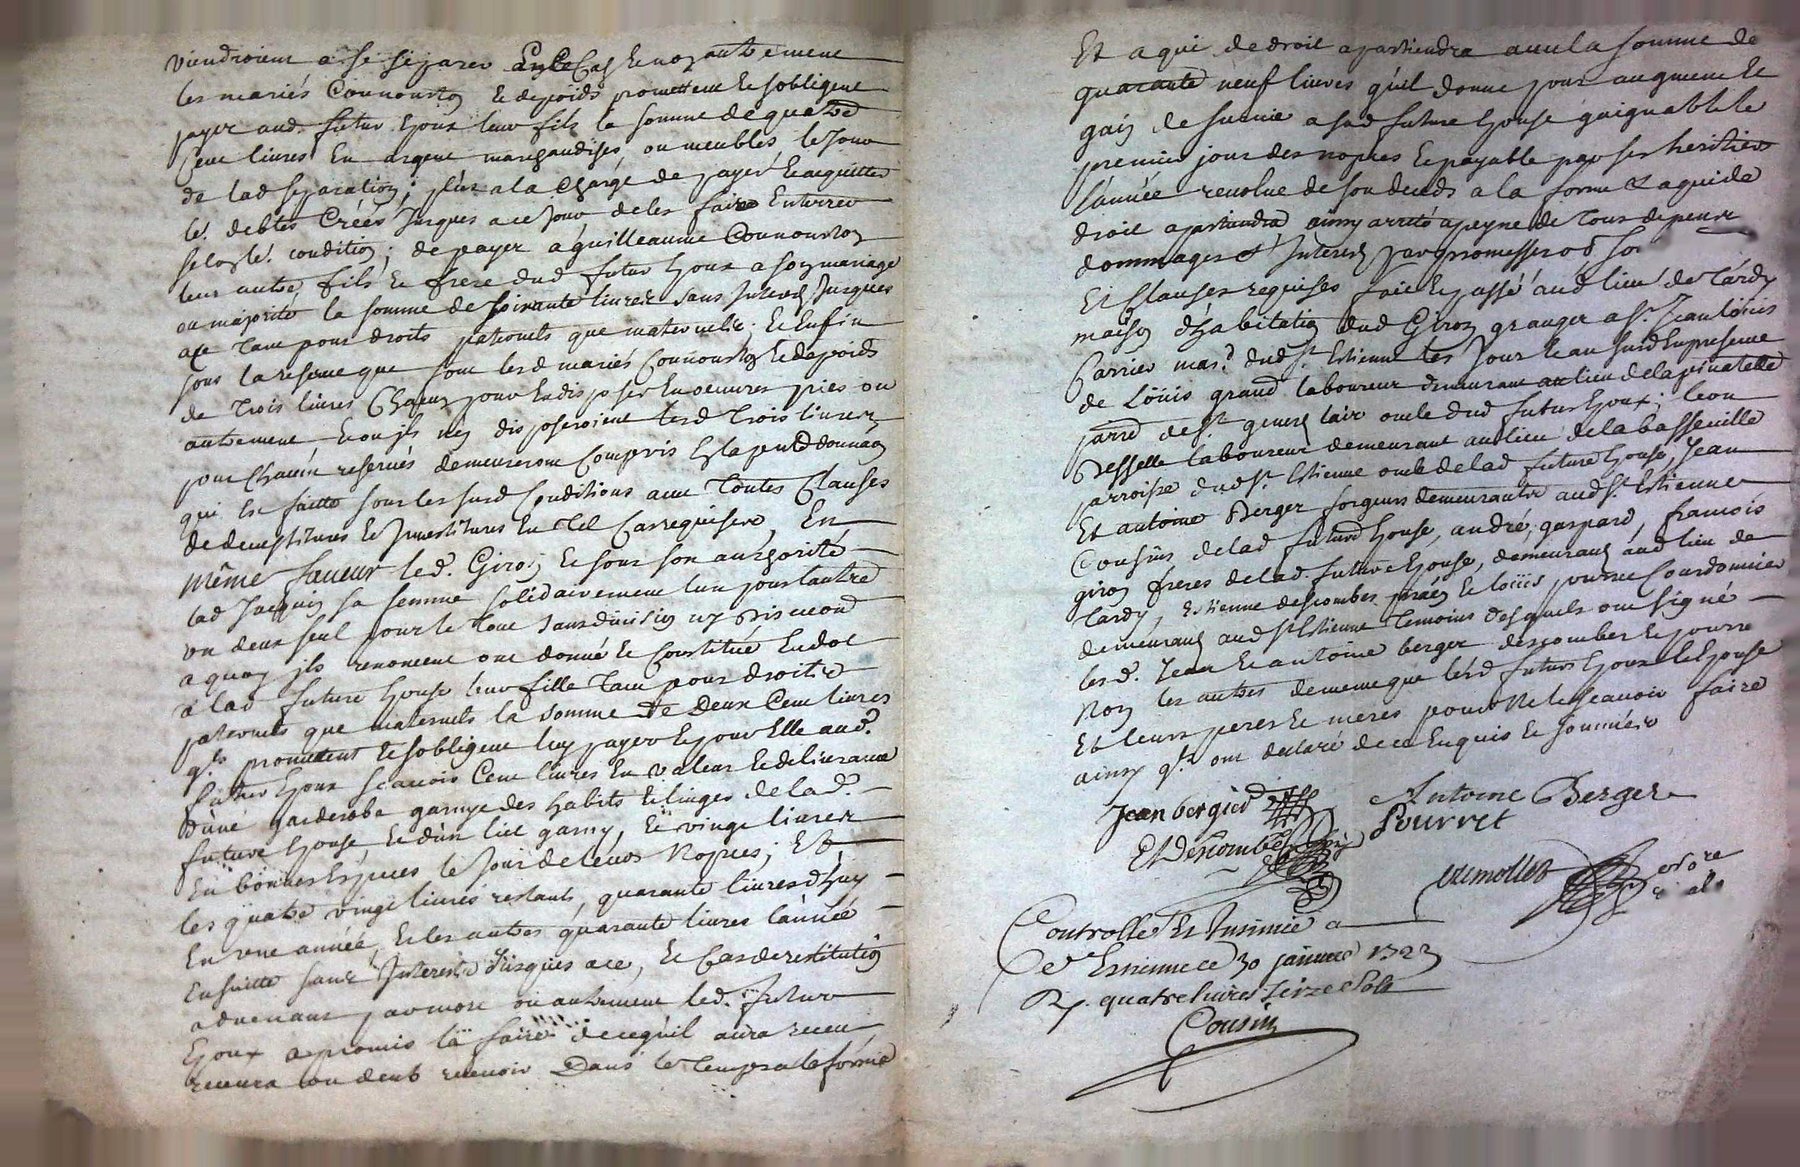 viendroient a se separer En ce Cas Et non autrement
les mariés Connouston Et depoids promettent Et sobligent
payer aud. futur Epoux leur fils la somme de quatre
Cent livres En argent marchandises, ou meubles le Jour
de lad separation; plus a la Charge de payer Et acquitter
le. debtes Créés Jusques a ce Jour de les faire Enterrer
selon le. condition; de payer a guilleaume Connouston
leur autre fils Et frere dud futur Epoux a son mariage
ou majorité la somme de soixante livres sans Interest Jusques
a ce Tant pour droits paternels que maternels. Et Enfin
sous la reserve que font lesd mariés Connouston Et depoids
de Trois livres Chacun pour En disposer En oeuvres pies ou
autrement Et ou ils n'en disposeroient lesd Trois livres
pour Chacun reservés demeureront Compris En la pnte donnaon
qui Est faitte sous les susd Conditions avec Toutes Clauses
de devestitures Et Investitures En Tel Cas requises, En
même faveur led. Giron Et sous son authorité
lad Jacquin sa femme solidairement lun pour lautre
un deux seul pour le Tout sans division ny Discution
a quoy ils renoncent ont donné Et Constitué En dot
a lad future Epouse leur fille Tant pour droits
paternels que maternels la somme de Deux Cent livres
qls promettent Et sobligent luy payer Et pour Elle aud.
futur Epoux scavoir Cent livres En valeur Et delivrance
d'une garderobe garnye des habits Et linges de lad.
future Epouse, Et d'un lict garny, Et vingt livres
En bonnes Especes le Jour de leurs Nopces; Et
les quatre vingt livres restants, quarante livres d'huy
En une année, Et les autres quarante livres l'année
Ensuitte sans Interest Jusques a ce, Et Cas de restitution
advenant par mort ou autrement led. futur
Epoux a promis la faire de ce qu'il aura receu
recevra ou deub recevoir Dans le Temps a la forme
Et a qui de droit apartiendra avec la somme de
quarante neuf livres qu'il donne pour augment Et
gain de survie a sad future Epouse gaignable le
premier jour des nopces Et payable par ses heritiers
l'année revolue de son deceds a la forme Et a qui de
droit apartiendra ainsy arresté a peyne de Tous depens
dommages Et Interest par promesse
Et Clauses requises fait Et passé aud lieu de Tardy
maison d'habitation dud Giron granger a Sr. Jean Louis
Carrier mar.d dud St. Estienne les Jour Et an susd En presence
de Loüis grand laboureur demeurant au lieu de la pinatelle
parre de St. genest lair oncle dud futur Epoux; leon
Desselle laboureur demeurant au lieu de la basseville
parroisse dud St. Estienne oncle de lad future Epouse, Jean
Et antoine Berger forgeurs demeurants aud St. Estienne
Cousins de lad future Epouse, andré, gaspard, francois
giron freres de lad. future Epouse, demeurants aud lieu de
Tardy, Estienne descombes Et loüis pourret Courdonnier
demeurants aud St Estienne Temoins desquels ont signé
lesd. Jean Et antoine berger descombes Et pourret
Non les autres de meme que lesd futurs Epoux Et Epouse
Et leurs peres Et meres pour Ne le scavoir faire
ainsy qls ont declaré de ce Enquis Et sommés
Jean bergier Antoine Berger
E Descombes Pourret
Controllé Et Insinué a
St Estienne ce 30 janvier 1723
R. quatre livres seize sols
Cousin